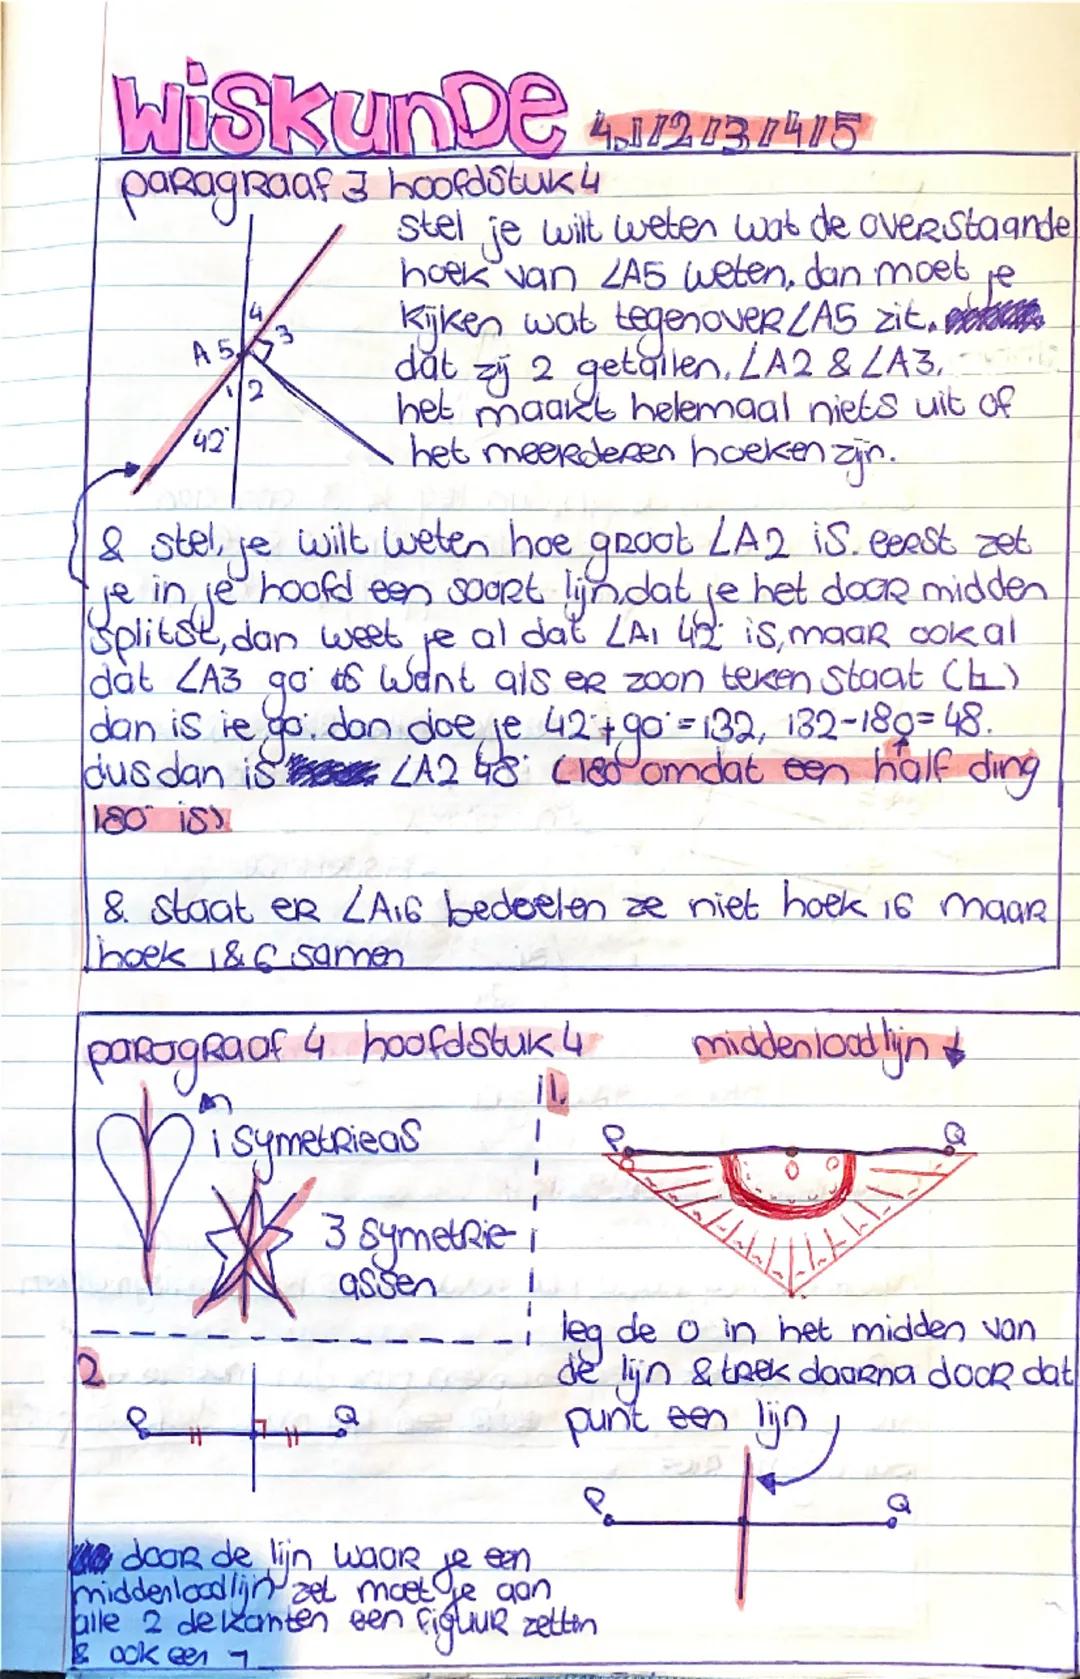 WiskunDe 4.1/2/3/4/5
paragraaf 3 hoofdstuk 4
stel je wilt weten wat de overstaande
hoek van ∠A5 weten, dan moet je
kijken wat tegenover ∠A5 zit.
dat zij 2 getallen, ∠A2 & ∠A3,
het maakt helemaal niets uit of
het meerderen hoeken zijn.
4
A 5 3
1 2
42°
& stel, je wilt weten hoe groot ∠A2 is. eerst zet
je in je hoofd een soort lijn, dat je het door midden
splitst, dan weet je al dat ∠A1 42° is, maar ook al
dat ∠A3 90° is want als er zoon teken staat (∟)
dan is ie 90°. dan doe je 42°+90°=132, 132-180=48.
dus dan is ∠A2 48° (180° omdat een half ding
180° is)
& staat er ∠A16 bedoelen ze niet hoek 16 maar
hoek 1&6 samen
paragraaf 4 hoofdstuk 4 middenloodlijn
1 symetrieas
3 symetrie
assen
1.
P Q
0
leg de 0 in het midden van
de lijn & trek daarna door dat
punt een lijn
P Q
2
P Q
door de lijn waar je een
middenloodlijn zet moet je aan
alle 2 de kanten een figuur zetten
& ook een ¬